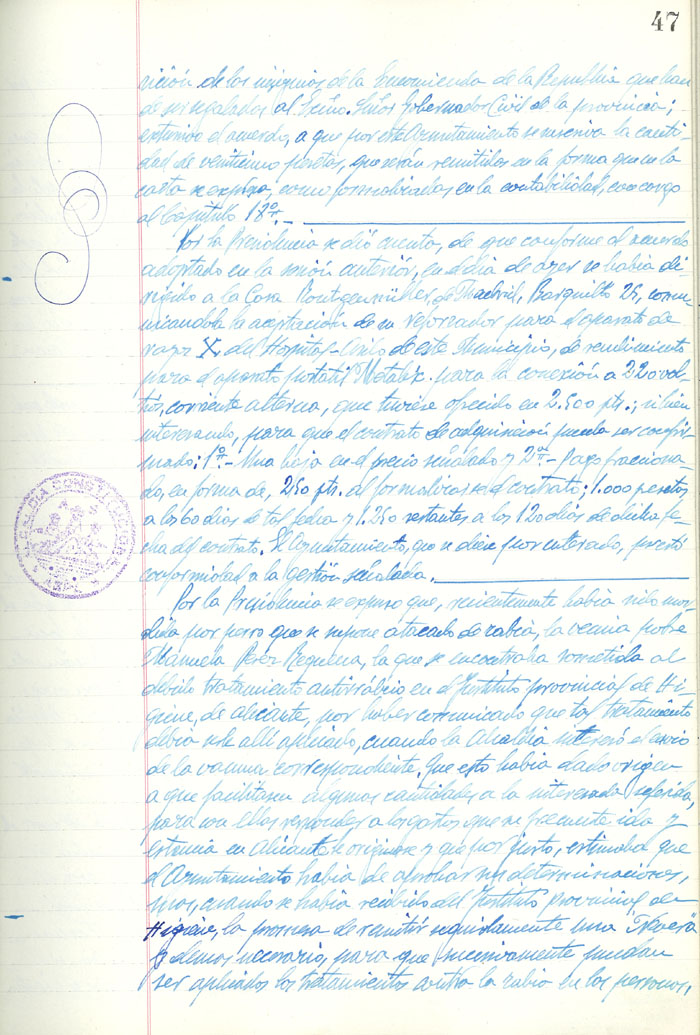 47
sición de las insignias de la Encomienda de la República que han
de ser regaladas al Señor Gobernador Civil de la provincia;
el acuerdo, a que por este Ayuntamiento se suscriba la canti-
dad de veinticinco pesetas, que serán remitidas en la forma que en la
carta se expresa, como formalizadas en la contabilidad, con cargo
al Capítulo 18º.-
Por la Presidencia se dió cuenta, de que conforme al acuerdo
adoptado en la sesión anterior, en el día de ayer se había di-
rigido a la Casa de Madrid, Barquillo 25, comu-
nicandole la aceptación de su reforzador para el aparato de
rayos X, del Hospital-Asilo de este Municipio, de rendimiento
para el aparato portatil Metalix para la conexión a 220 vol-
tios, corriente alterna, que tuviese ofrecido en 2.500 pts.; si bien
interesando, para que el contrato de adquisición pueda ser confir-
mado: 1º.- Una baja en el precio señalado y 2º.- Pago fracciona-
do, en forma de, 250 pts. al formalizarse el contrato; 1.000 pesetas
a los 60 días de tal fecha y 1.250 restantes a los 120 días de dicha fe-
cha del contrato. El Ayuntamiento, que se dió por enterado, prestó
conformidad a la gestión señalada.
Por la Presidencia se expuso que, recientemente había sido mor-
dida por perro que se supone atacado de rabia, la vecina pobre
Manuela Perez Requena, la que se encontraba sometida al
debido tratamiento antirrábico en el Instituto provincial de Hi-
giene, de Alicante, por haber comunicado que tal tratamiento
debia ser allí aplicado, cuando la Alcaldía interesó el envio
de la vacuna correspondiente. Que esto había dado origen
a que facilitasen algunas cantidades a la interesada referida,
para con ellas responder a los gastos que su frecuente ida y
estancia en Alicante le originase y que por justo, estimaba que
el Ayuntamiento había de aprobar sus determinaciones,
mas, cuando se había recibido del Instituto provincial de
Higiene, la promesa de remitir seguidamente una "Nevera"
y demas necesario, para que sucesivamente puedan
ser aplicados los tratamientos contra la rabia en las personas,
ALCALDIA CONSTITUCIONAL
ASPE